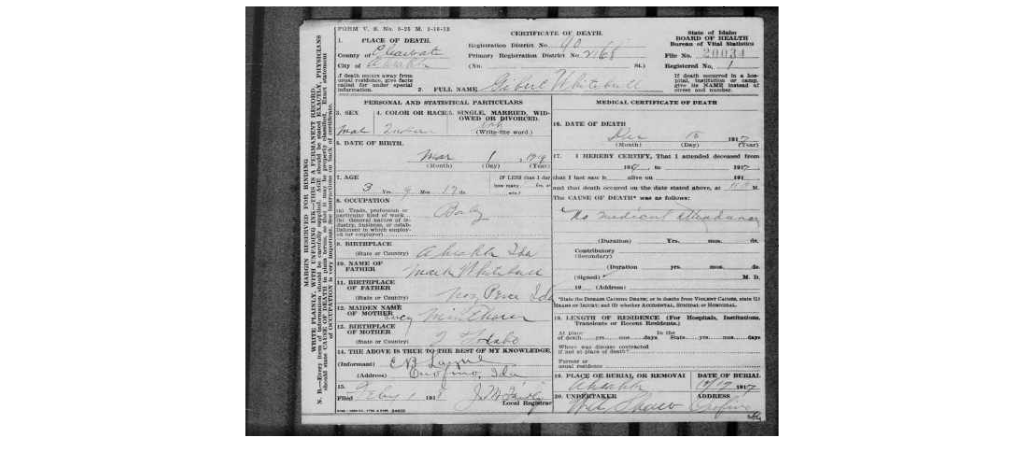 FORM V. S. No. 5-25 M. 2-16-15
CERTIFICATE OF DEATH
State of Idaho
BOARD OF HEALTH
Bureau of Vital Statistics
1. PLACE OF DEATH.
Registration District No. 90
County of
Primary Registration District No. 2168
File No. 20034
City of Ahsahka
(No. St.)
Registered No. 1
If death occurs away from usual residence, give facts called for under special information.
If death occurred in a hospital, institution or camp, give its NAME instead of street and number.
2. FULL NAME Gilbert Whitebull
PERSONAL AND STATISTICAL PARTICULARS
MEDICAL CERTIFICATE OF DEATH
3. SEX
4. COLOR OR RACE
5. SINGLE, MARRIED, WIDOWED OR DIVORCED.
(Write the word.)
Male Indian
16. DATE OF DEATH
Dec 1917
(Month) (Day) (Year)
6. DATE OF BIRTH.
Mar 6
(Month) (Day) (Year)
17. I HEREBY CERTIFY, That I attended deceased from
191 to 191
7. AGE
IF LESS than 1 day
that I last saw h alive on 191
3 Yrs. 9 Mos.
and that death occurred on the date stated above, at M.
8. OCCUPATION
The CAUSE OF DEATH* was as follows:
(a) Trade, profession or particular kind of work
(b) General nature of industry, business, or establishment in which employed (or employer)
Baby
No medical attendance
(Duration) Yrs. mos. ds.
9. BIRTHPLACE
(State or Country) Ahsahka Ida
Contributory
(Secondary)
10. NAME OF FATHER
Mark Whitebull
(Duration) yrs. mos. ds.
(Signed) M. D.
11. BIRTHPLACE OF FATHER
(State or Country) Nez Perce Ida
19 (Address)
*State the DISEASE CAUSING DEATH; or in deaths from VIOLENT CAUSES, state MEANS OF INJURY; and whether ACCIDENTAL, SUICIDAL or HOMICIDAL.
12. MAIDEN NAME OF MOTHER
Lucy
18. LENGTH OF RESIDENCE (For Hospitals, Institutions, Transients or Recent Residents.)
13. BIRTHPLACE OF MOTHER
(State or Country) Idaho
At place of death yrs. mos. days
In the State yrs. mos. days
Where was disease contracted if not at place of death?
14. THE ABOVE IS TRUE TO THE BEST OF MY KNOWLEDGE
Former or usual residence
(Informant)
(Address) Orofino, Ida
19. PLACE OF BURIAL OR REMOVAL
DATE OF BURIAL
Ahsahka 1917
15.
Filed Feby 1 1918
Local Registrar
20. UNDERTAKER
ADDRESS
Orofino
MARGIN RESERVED FOR BINDING
WRITE PLAINLY, WITH UNFADING INK—THIS IS A PERMANENT RECORD.
N. B.—Every item of information should be carefully supplied. AGE should be stated EXACTLY. PHYSICIANS
should state CAUSE OF DEATH in plain terms, so that it may be properly classified. Exact statement
of OCCUPATION is very important. See instructions on back of certificate.